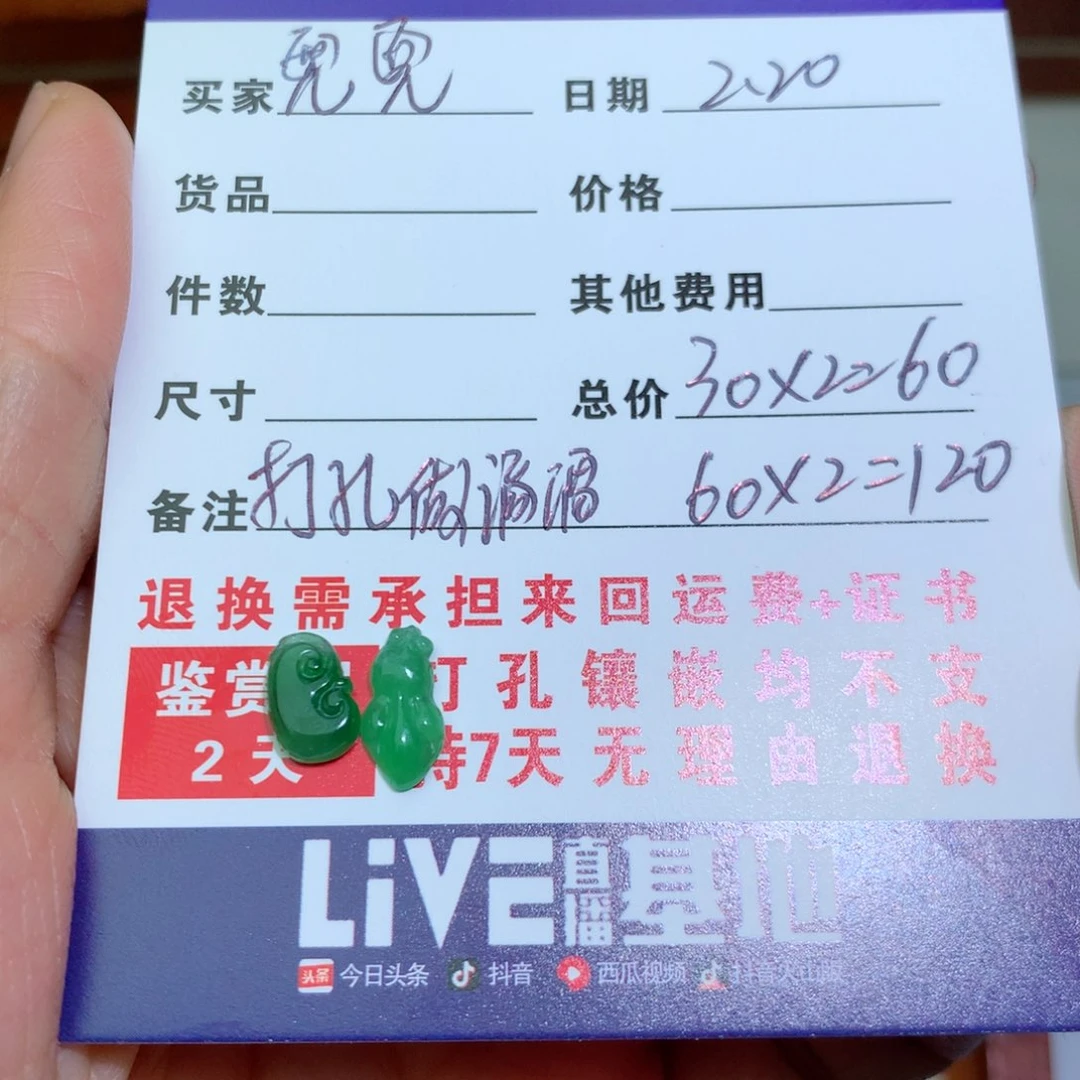 买家 日期 2.20
货品 价格
件数 其他费用
尺寸 总价 30×2=60
备注 打孔做滴滴 60×2=120
退换需承担来回运费+证书
鉴赏 打孔镶嵌均不支
2天 持7天无理由退换
LiVE直播基地
头条 今日头条 抖音 西瓜视频 抖音火山版